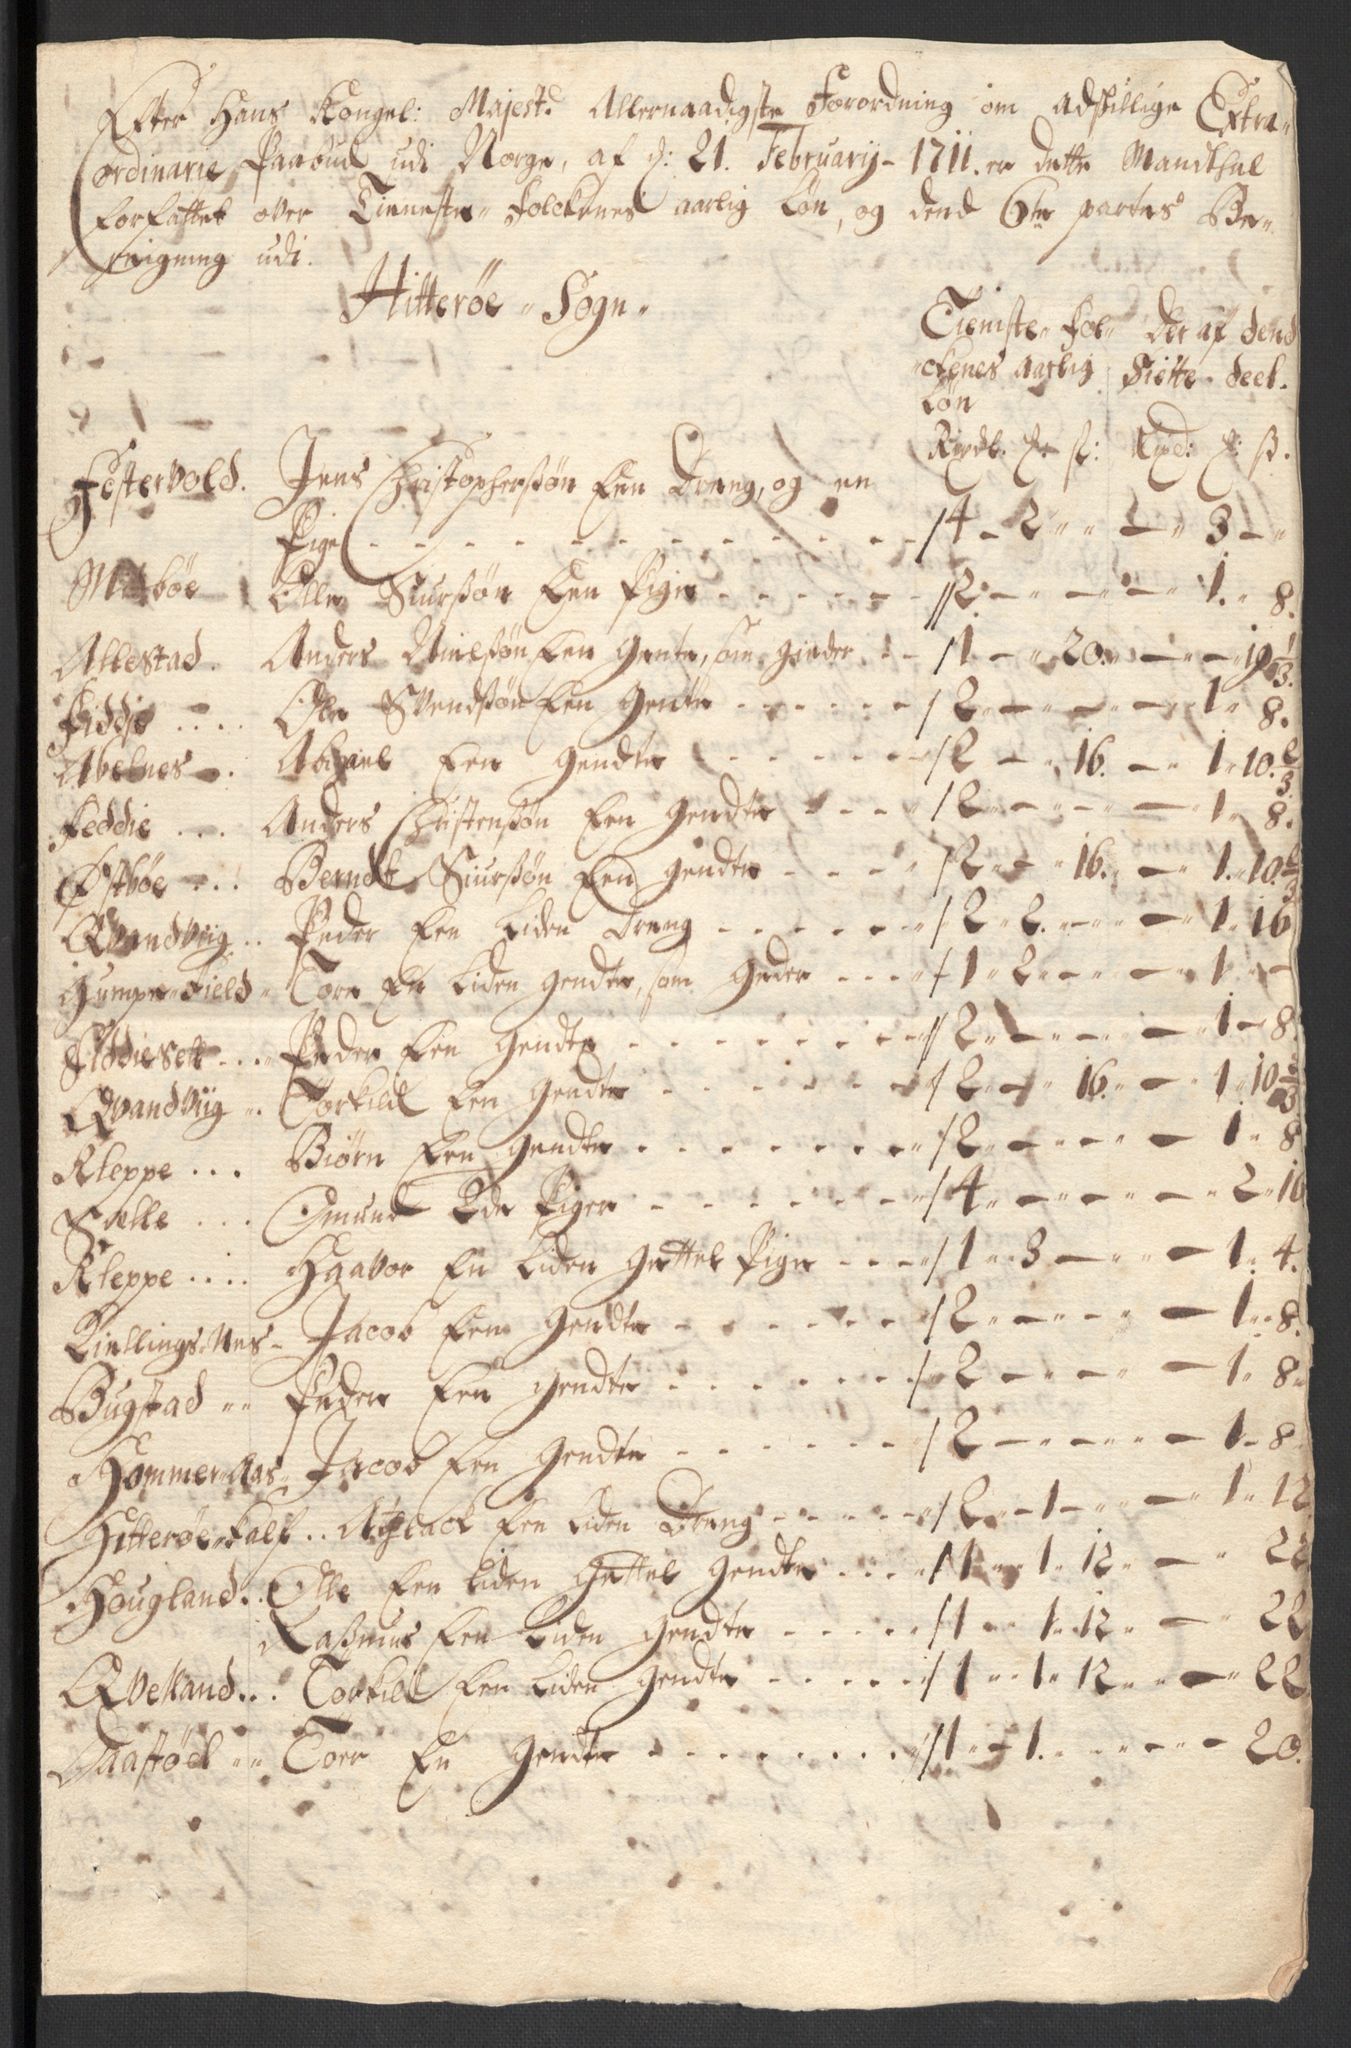 Efter Hans Kongel: Majest: Allernaadigste Forordning om adskillige Extra-
ordinarie Paabud udi Norge, af d: 21. Februarij 1711. er dette Mandthal
forfattet over Tieneste-Folckenes aarlig Løn, og dend 6te partes Be-
reigning udi.
Hitterøe Sogn
Tieniste-Fol- Der af dend
ckenes aarlig Siette deel.
Løn
Rixdl. : ß: Rixd: : ß.
Jens Christophersøn Een Dreng, og en
Festervold.
Pige - - - 4 - 2 - - 3 -
Midbøe Olle Siursøn Een Pige - - - 2 - - - 1. 8.
Allestad. Anders Nielsøn Een Gente, som gieder - 1 - 20. - - 19 1/3.
Fiddie .... Ole Svendsøn Een Gente - - - 2 - - - 1. 8.
Abelnes . Een Gendte - - - 2 - 16. - 1. 10. 2/3.
Feddie ... Anders Christensøn Een Gendte - - - 2 - - - 1. 8.
Østbøe ... Berndt Siursøn Een Gendte - - - 2 - 16. - 1. 10. 2/3
Qvandviig .. Peder Een Liden Dreng - - - 2 - 2. - - 1. 16
Gumpefield Tore En Liden Gendte, som Geder - - - 1 - 2 - - 1 -
Fiddiesett ... Peder Een Gendte - - - 2 - - - 1 - 8.
Qvandviig .. Torkild Een Gendte - - - 2 - 16. - 1. 10 2/3
Kleppe ... Biørn Een Gendte - - - 2 - - - 1. 8
Selle ... Omund Toe Piger - - - 4 - - - 2. 16
Kleppe .... Haavor En Liden Giettel Pige - - - 1 - 3 - - 1. 4.
Kiellings-Nes - Jacob Een Gendte - - - 2 - - - 1. 8.
Bugstad Peder Een Gendte - - - 2 - - - 1. 8.
Hommer-Aas Jacob Een Gendte - - - 2 - - - 1 - 8
Hitterøe-Kalf .. Aslack Een Liden Dreng - - - 2 - 1 - - 1. 12
Hougland .. Olle Een Liden Giettel Gendte - - - 1 - 1. 12 - 22
Rasmus Een Liden Gendte - - - 1 - 1. 12 - 22
Qvelland ... Torkild Een Liden Gendte - - - 1 - 1. 12 - 22
Aastøel Tore En Gendte - - - 1 - 1. - - 20.